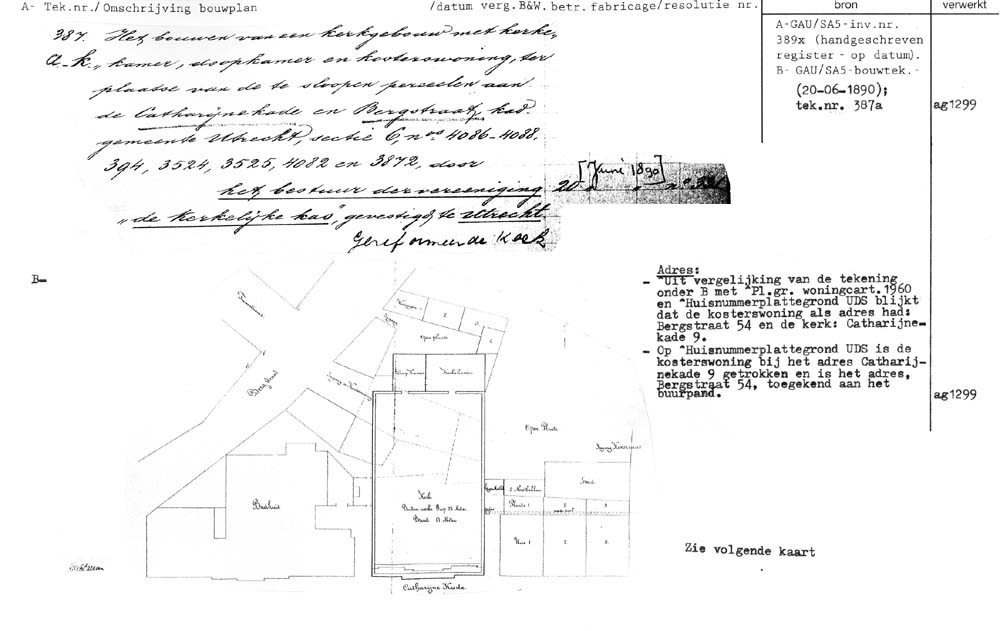 A- Tek.nr./Omschrijving bouwplan /datum verg.B&W.betr.fabricage/resolutie nr. bron verwerkt
387. Het bouwen van een kerkgebouw met kerke-
a-k. kamer, doopkamer en kosterswoning, ter
plaatse van de te sloopen perseelen aan
de Catharijnekade en Bergstraat, kad.
gemeente Utrecht, sectie C, nos 4086-4088,
394, 3524, 3525, 4082 en 3872, door
het bestuur der vereeniging 20 [Juni 1890]
"de Kerkelijke kas", gevestigd te Utrecht
Gereformeerde Kerk
A-GAU/SA5-inv.nr.
389x (handgeschreven
register - op datum).
B- GAU/SA5-bouwtek.-
(20-06-1890);
tek.nr. 387a
ag1299
B-
Adres:
- ^Uit vergelijking van de tekening
onder B met ^Pl.gr. woningcart.1960
en ^Huisnummerplattegrond UDS blijkt
dat de kosterswoning als adres had:
Bergstraat 54 en de kerk: Catharijne-
kade 9.
- Op ^Huisnummerplattegrond UDS is de
kosterswoning bij het adres Catharij-
nekade 9 getrokken en is het adres,
Bergstraat 54, toegekend aan het
buurpand.
ag1299
Berg straat
Open plaats
2
3
4
Open Plaats
Kerk
Breed 13 Meter
Plaats 1
2
3
Huis 1
2
3
Catharijne Kade
Zie volgende kaart